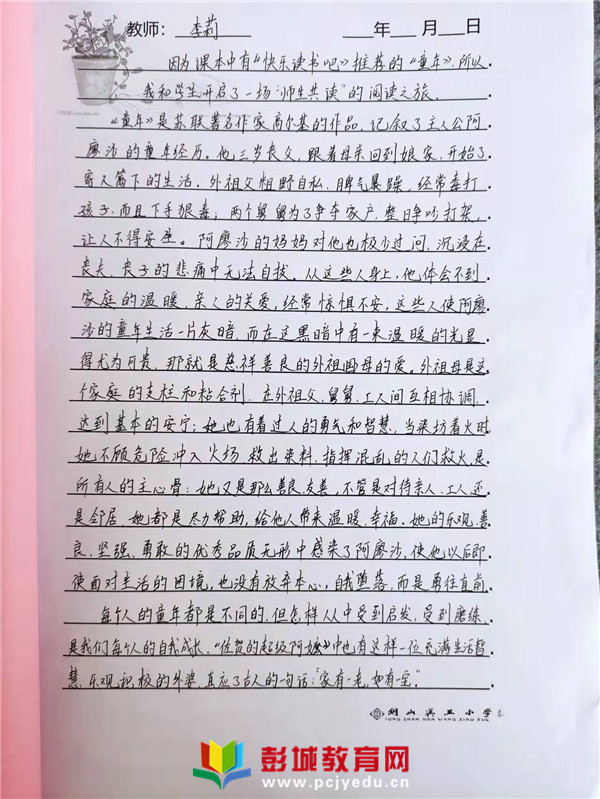 教师：李莉 年 月 日
因为课本中有“快乐读书吧》推荐的“童年》，所以
我和学生开启了一场“师生共读”的阅读之旅。
《童年》是苏联著名作家高尔基的作品，记叙了主人公阿
廖沙的童年经历。他三岁丧父，跟着母亲回到娘家，开始了
寄人篱下的生活。外祖父粗野自私、脾气暴躁，经常毒打
孩子，而且下手狠毒；两个舅舅为了争夺家产，整日争吵打架，
让人不得安生。阿廖沙的妈妈对他也极少过问，沉浸在
丧夫、丧子的悲痛中无法自拔。从这些人身上，他体会不到
家庭的温暖，亲人的关爱，经常惊惧不安，这些人使阿廖
沙的童年生活一片灰暗，而在这黑暗中有一束温暖的光显
得尤为可贵，那就是慈祥善良的外祖母的爱。外祖母是这
个家庭的支柱和粘合剂，在外祖父、舅舅、工人间互相协调，
达到基本的安宁；她也有着过人的勇气和智慧，当染坊着火时
她不顾危险冲入火场，救出染料，指挥混乱的人们救火，是
所有人的主心骨；她又是那么善良、友善，不管是对待亲人、工人还
是邻居，她都是尽力帮助，给他人带来温暖、幸福。她的乐观、善
良、坚强、勇敢的优秀品质无形中感染了阿廖沙，使他以后即
使面对生活的困境，也没有放弃本心，自我堕落，而是勇往直前。
每个人的童年都是不同的，但怎样从中受到启发，受到磨练，
是我们每个人的自我成长。“佐贺的超级阿嬷》中也有这样一位充满生活智
慧、乐观积极的外婆，真应了古人的一句话：“家有一老，如有一宝。”
铜山汉王小学
TONG SHAN HAN WANG XIAO XUE
彭城教育网
www.pcjyedu.cn